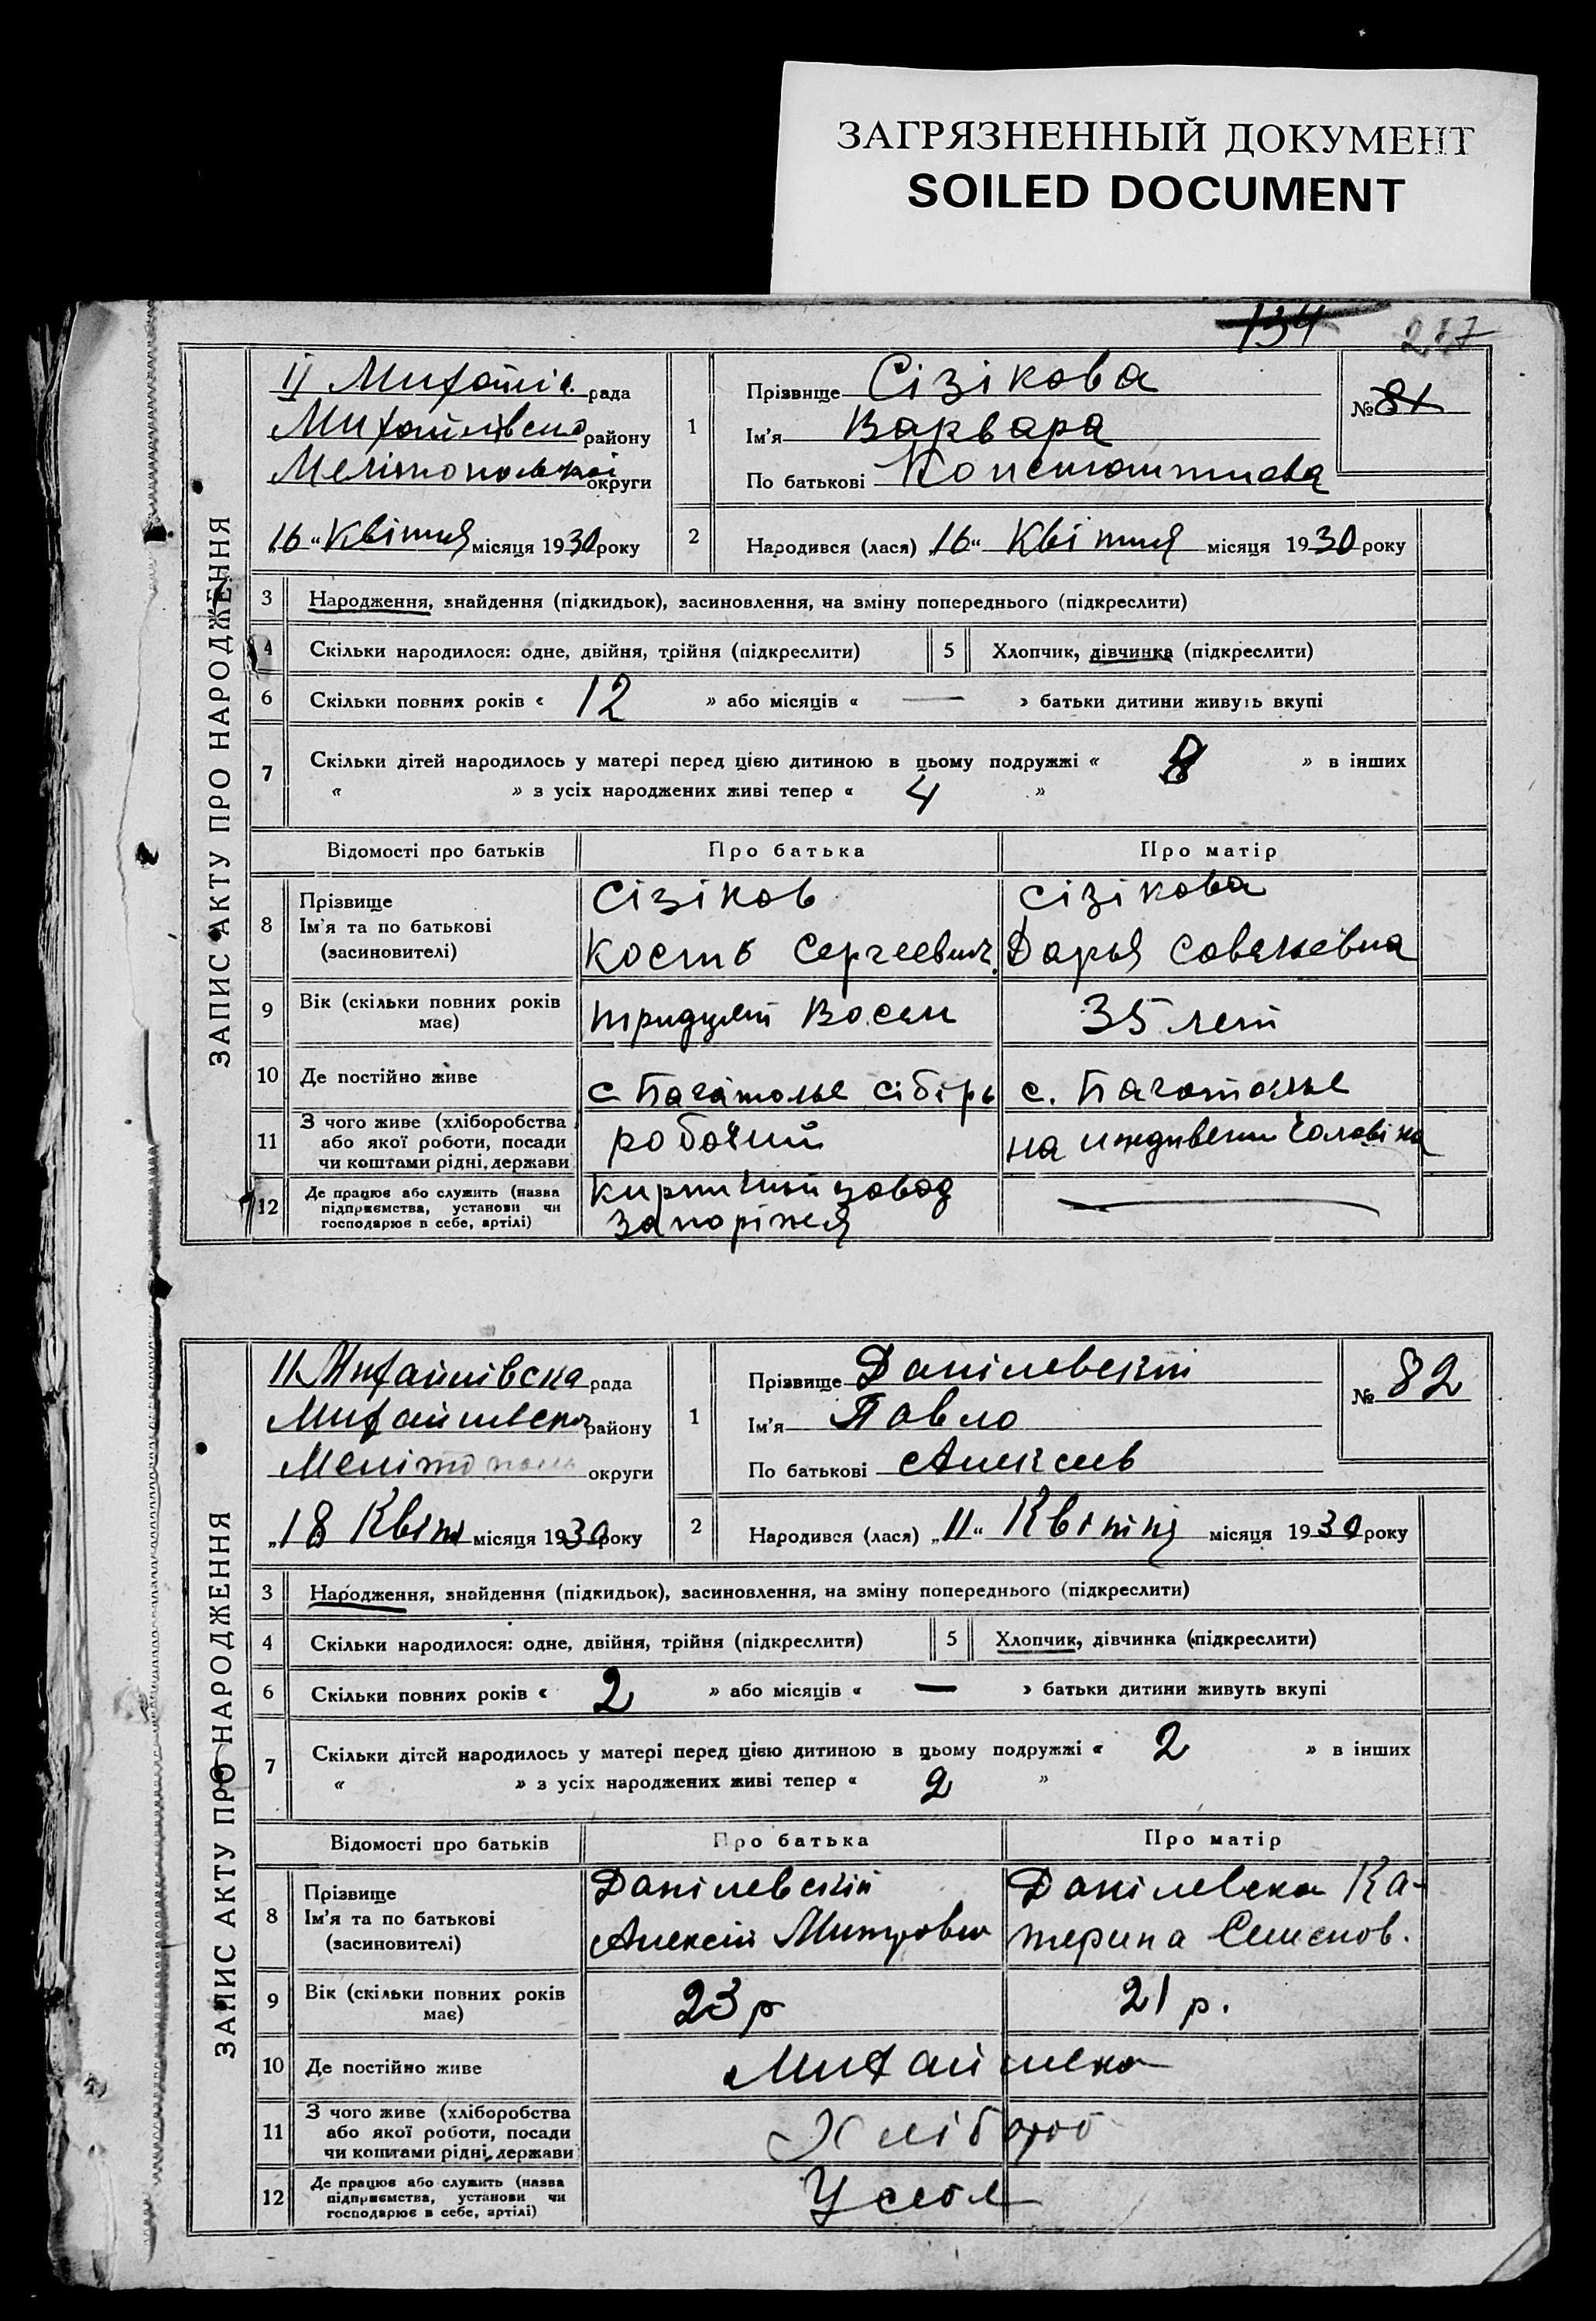 ЗАГРЯЗНЕННЫЙ ДОКУМЕНТ
SOILED DOCUMENT
134
ЗАПИС АКТУ ПРО НАРОДЖЕННЯ
ІІ Михайлів. рада
Михайлівсько району
Мелітопольської округи
16 " Квітня місяця 1930 року
1
Прізвище Сізікова
Ім'я Варвара
По батькові Константинова
№ 81
2
Народився (лася) „16" Квітня місяця 1930 року
3 Народження, знайдення (підкидьок), засиновлення, на зміну попереднього (підкреслити)
4 Скільки народилося: одне, двійня, трійня (підкреслити) 5 Хлопчик, дівчинка (підкреслити)
6 Скільки повних років « 12 » або місяців « — » батьки дитини живуть вкупі
7 Скільки дітей народилось у матері перед цією дитиною в цьому подружжі « 8 » в інших
« » з усіх народжених живі тепер « 4 »
Відомості про батьків Про батька Про матір
8 Прізвище
Ім'я та по батькові
(засиновителі)
Сізіков
Кость Сергеевич.
Сізікова
Дарья Савельевна
9 Вік (скільки повних років
має)
тридцят Восем
35 лет
10 Де постійно живе
с Багатолье сібірь
с. Багатолье
11 З чого живе (хліборобства
або якої роботи, посади
чи коштами рідні, держави
робочий
на иждивени Чоловіка
12 Де працює або служить (назва
підприємства, установи чи
господарює в себе, артілі)
Кирпичний завод
Запоріжея
—
ЗАПИС АКТУ ПРО НАРОДЖЕННЯ
ІІ Михайлівска рада
Михайлівског району
Мелітополь округи
„18 Квітн місяця 1930 року
1
Прізвище Данілевский
Ім'я Павло
По батькові Алексеев
№ 82
2
Народився (лася) „11" Квітня місяця 1930 року
3 Народження, знайдення (підкидьок), засиновлення, на зміну попереднього (підкреслити)
4 Скільки народилося: одне, двійня, трійня (підкреслити) 5 Хлопчик, дівчинка (підкреслити)
6 Скільки повних років « 2 » або місяців « — » батьки дитини живуть вкупі
7 Скільки дітей народилось у матері перед цією дитиною в цьому подружжі « 2 » в інших
« » з усіх народжених живі тепер « 2 »
Відомості про батьків Про батька Про матір
8 Прізвище
Ім'я та по батькові
(засиновителі)
Данілевский
Алексій Митрович
Данілевска Ка-
терина Семенов.
9 Вік (скільки повних років
має)
23 р
21 р.
10 Де постійно живе
Михайливка
11 З чого живе (хліборобства
або якої роботи, посади
чи коштами рідні, держави
Хлібороб
12 Де працює або служить (назва
підприємства, установи чи
господарює в себе, артілі)
У себе